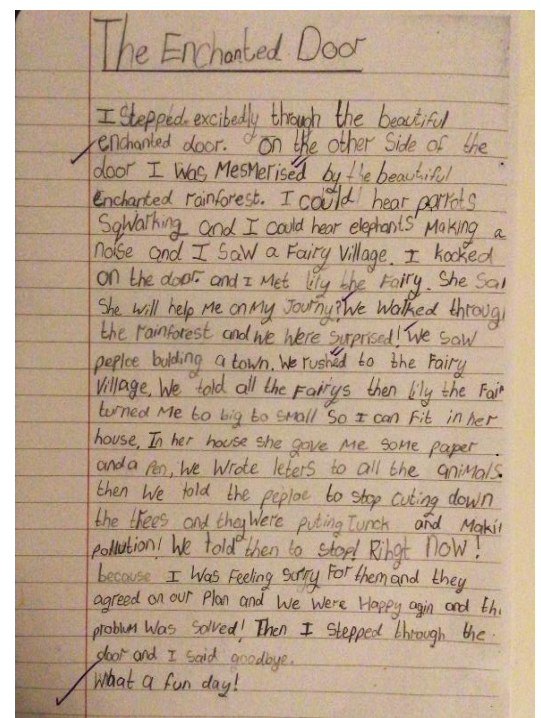 The Enchanted Door
I Stepped excitedly through the beautiful
enchanted door. On the other Side of the
door I Was Mesmerised by the beautiful
enchanted rainforest. I could hear parrots
Sqwarking and I could hear elephants Making a
noise and I Saw a Fairy Village. I kocked
on the door. and I Met lily the Fairy. She Sai
She will help Me on My Journy? We Walked throug
the rainforest and We Were Surprised! We saw
peploe bulding a town. We rushed to the Fairy
Village. We told all the Fairys then lily the Fair
turned Me to big to small So I can Fit in her
house. In her house she gave Me some paper
and a Pen, We Wrote leters to all the animals.
then We told the peploe to stop cuting down
the trees and they Were puting and Maki
pollution! We told then to stop! Rihgt NoW!
because I Was Feeling Sorry For them and they
agreed on our Plan and We Were Happy agin and th
problem Was Solved! Then I Stepped through the
door and I said goodbye.
What a fun day!